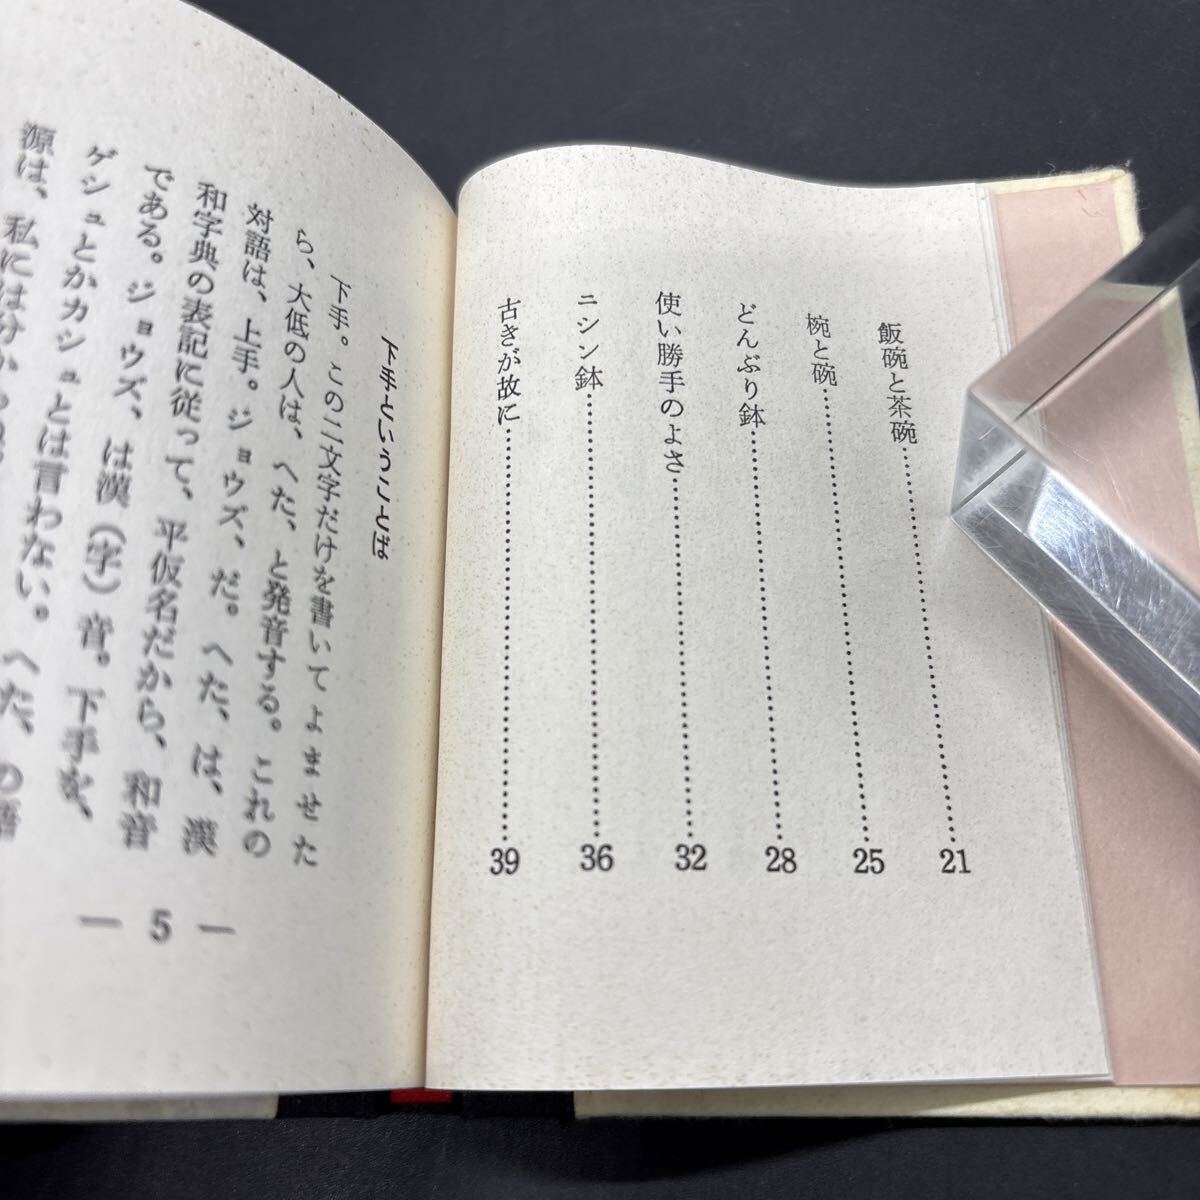 飯碗と茶碗……………………21
椀と碗……………………25
どんぶり鉢……………………28
使い勝手のよさ……………………32
ニシン鉢……………………36
古きが故に……………………39
下手ということば
下手。この二文字だけを書いてよませた
ら、大低の人は、へた、と発音する。これの
対語は、上手。ジョウズ、だ。へた、は、漢
和字典の表記に従って、平仮名だから、和音
である。ジョウズ、は漢（字）音。下手を、
ゲシュとかカシュとは言わない。へた、の語
源は、私には分か
— 5 —